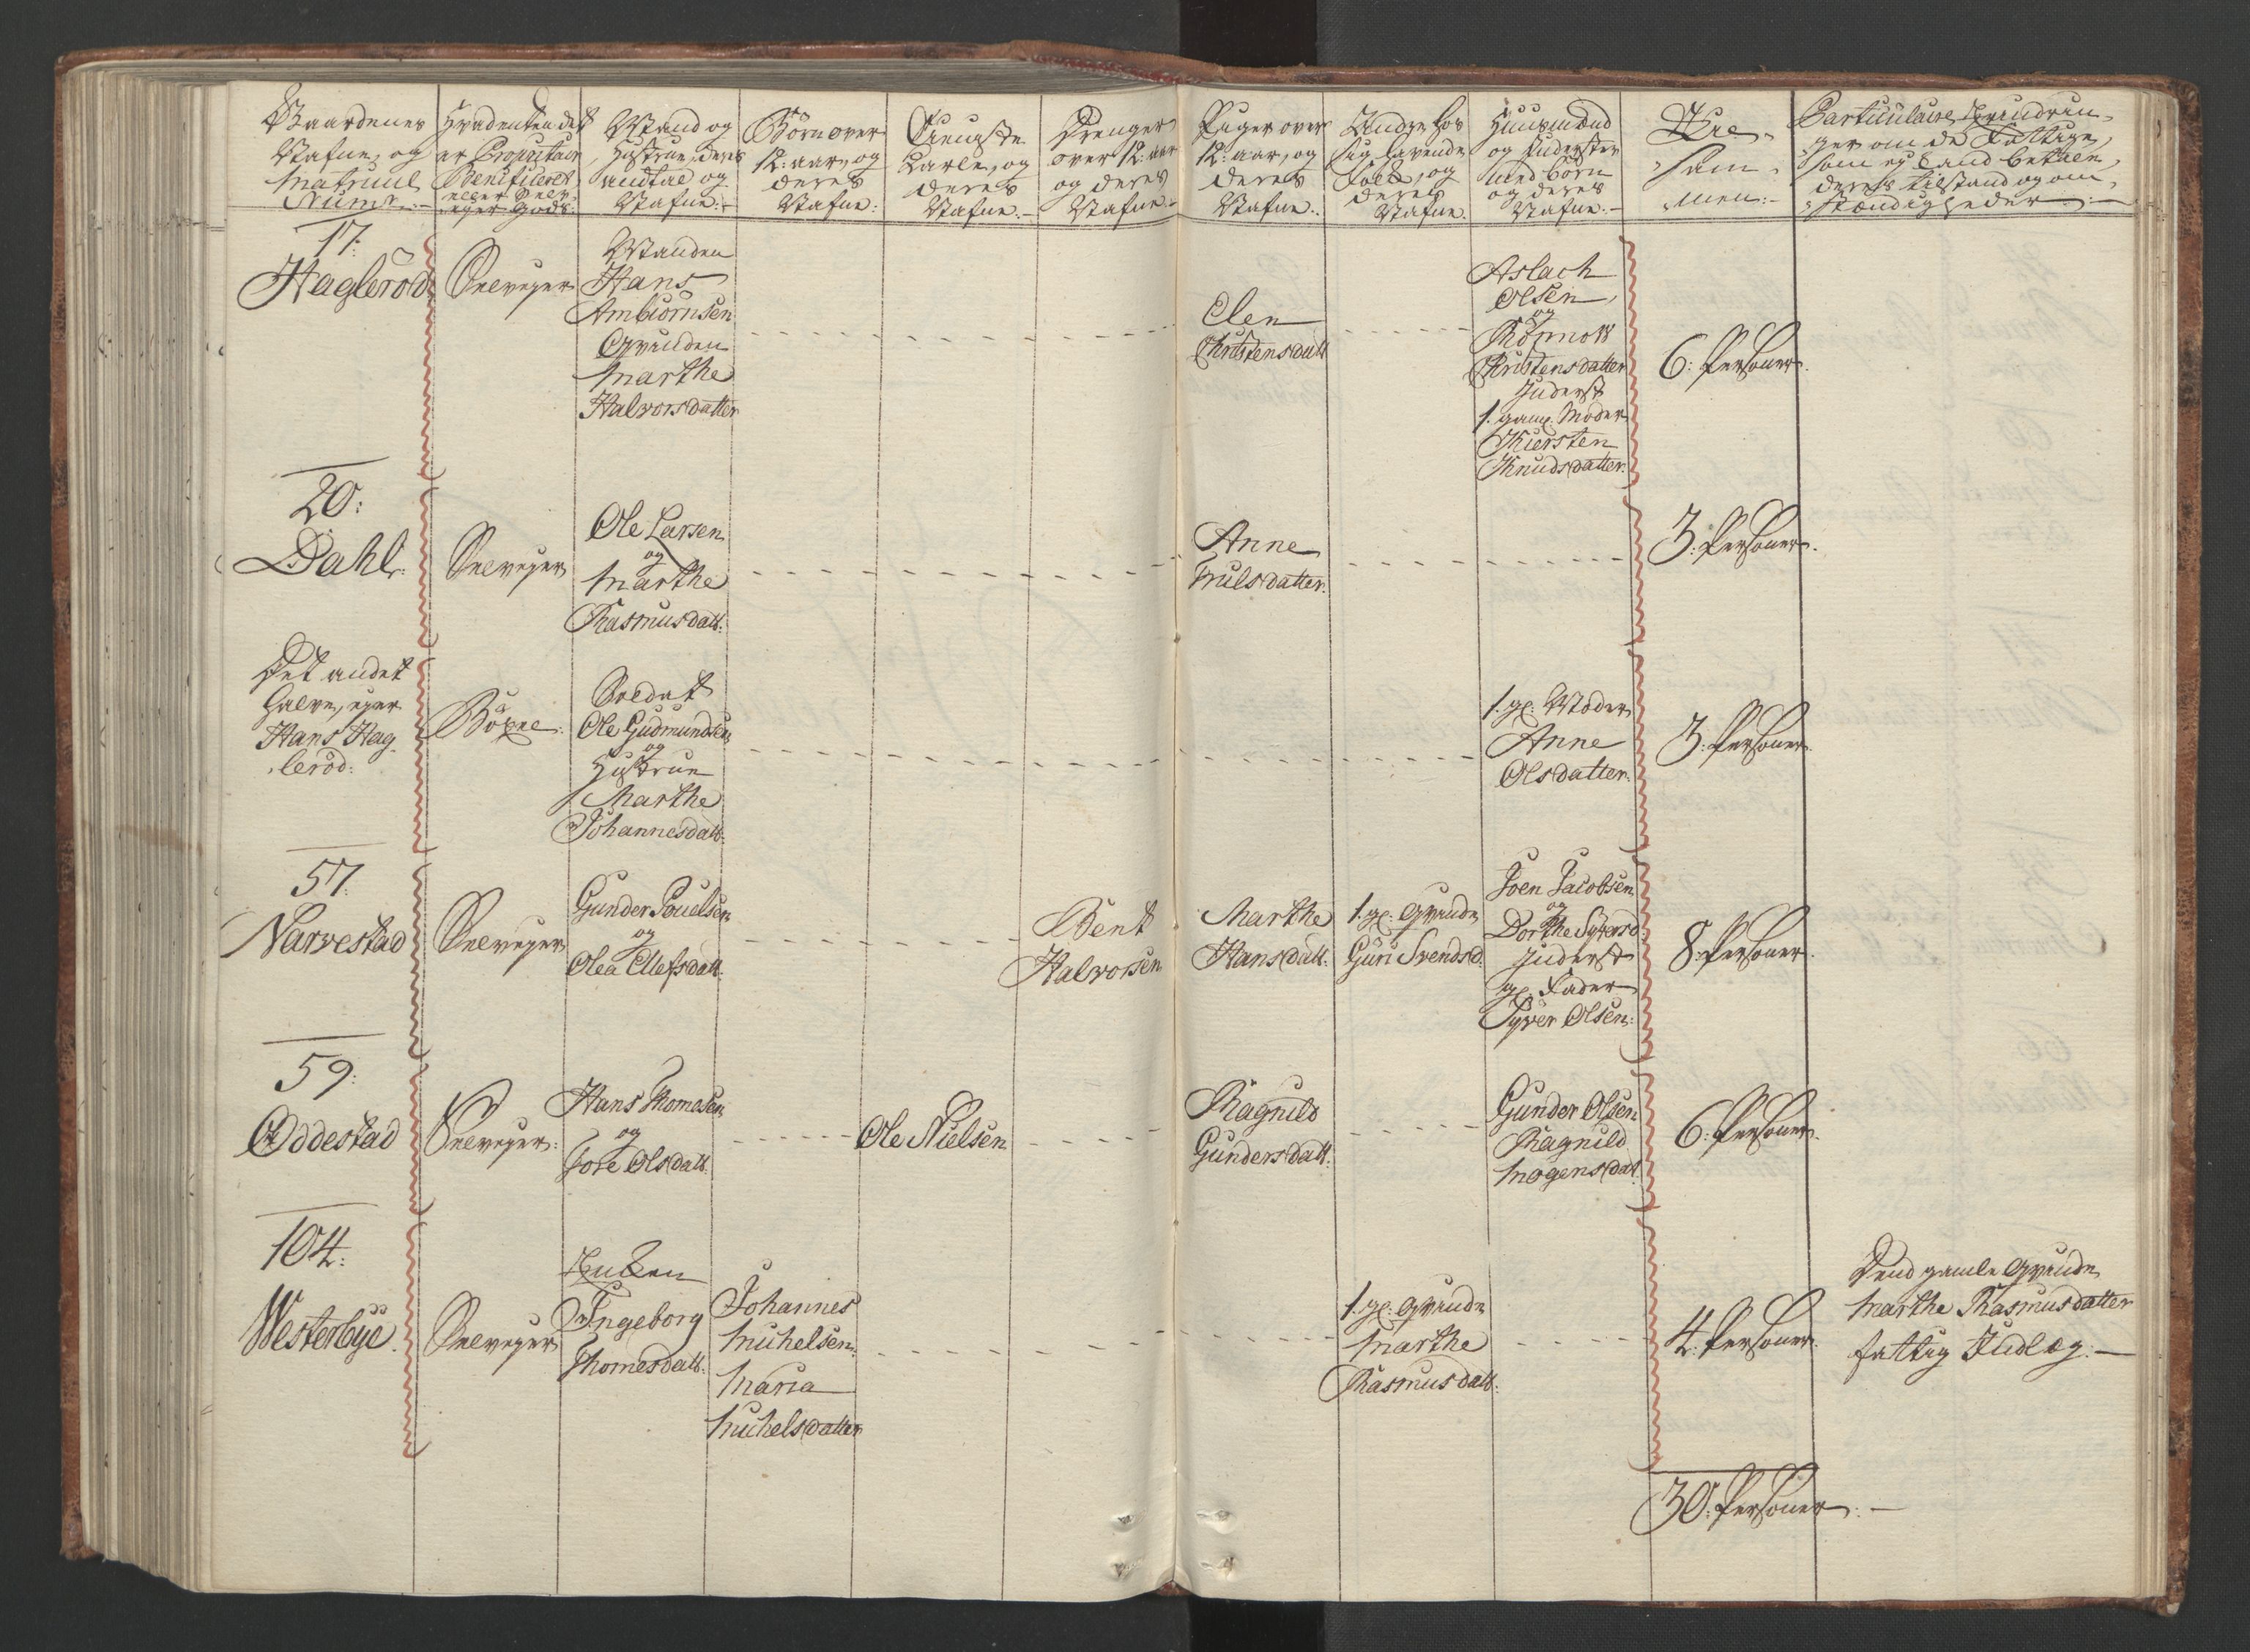 Gaardenes
Nafne, og
Matricul
Numr.
Hvadenten det
er Proprietair
Beneficeret
eller Selv-
eger Gods.
Mand og
Hustrue, deres
andtal og
Nafne:
Börn over
12: aar, og
deres
Nafne:
Tieniste
Karle, og
deres
Nafne.
Drenger
over 12: aar
og deres
Nafne.
Piger over
12: aar, og
deres
Nafne.
Andre hos
sig havende
Folk, og
deres
Nafne.
Huusmænd
og Inderster
med börn
og deres
Nafne.
Til-
sam-
men:
Particulaire Erindrin-
ger om de Fattige,
som ej kand betale,
deres tilstand og om-
stændigheder.
17:
Hagleröd
Selvejer
Manden
Hans
Ambiörnsen
Qvinden
Marthe
Halvorsdatter
Elen
Christensdatt
Aslach
Olsen
og
Rönnow
Christensdatter
Inderst
1. gaml. Moder
Kiersten
Knudsdatter.
6: Personer.
20:
Dahl.
Selvejer
Ole Larsen
og
Marthe
Rasmusdatt:
Anne
Trulsdatter.
3: Personer.
Det andet
halve, ejer
Hans Hag-
leröd:
Böxel:
Soldat
Ole Gudmundsen
og
Hustrue
Marthe
Johannesdatt:
1. gl: Moder
Anne
Olsdatter.
3: Personer.
57.
Narvestad
Selvejer
Gunder Pouelsen
og
Olea Ellefsdatt.
Bent
Halvorsen
Marthe
Hansdatt:
1. gl: Qvinde
Guri Svendsd.
Joen Jacobsen
og
Dorthe Syversd
Inderst
gl. Fader
Syver Olsen:
8: Personer.
59:
Oddestad
Selvejer:
Hans Thomesen
og
Tore Olsdatt.
Ole Nielsen
Ragnild
Gundersdatt:
Gunder Olsen
Ragnild
Mogensdat
6: Personer.
104:
Westerbye.
Selvejer
Enken
Ingeborg
Thomesdatt:
Johannes
Michelsen.
Maria
Michelsdatter
1. gl: Qvinde
Marthe
Rasmusdatt:
4: Personer.
Dend gamle Qvinde
Marthe Rasmusdatter
fattig Indlæg:
30: Personer.